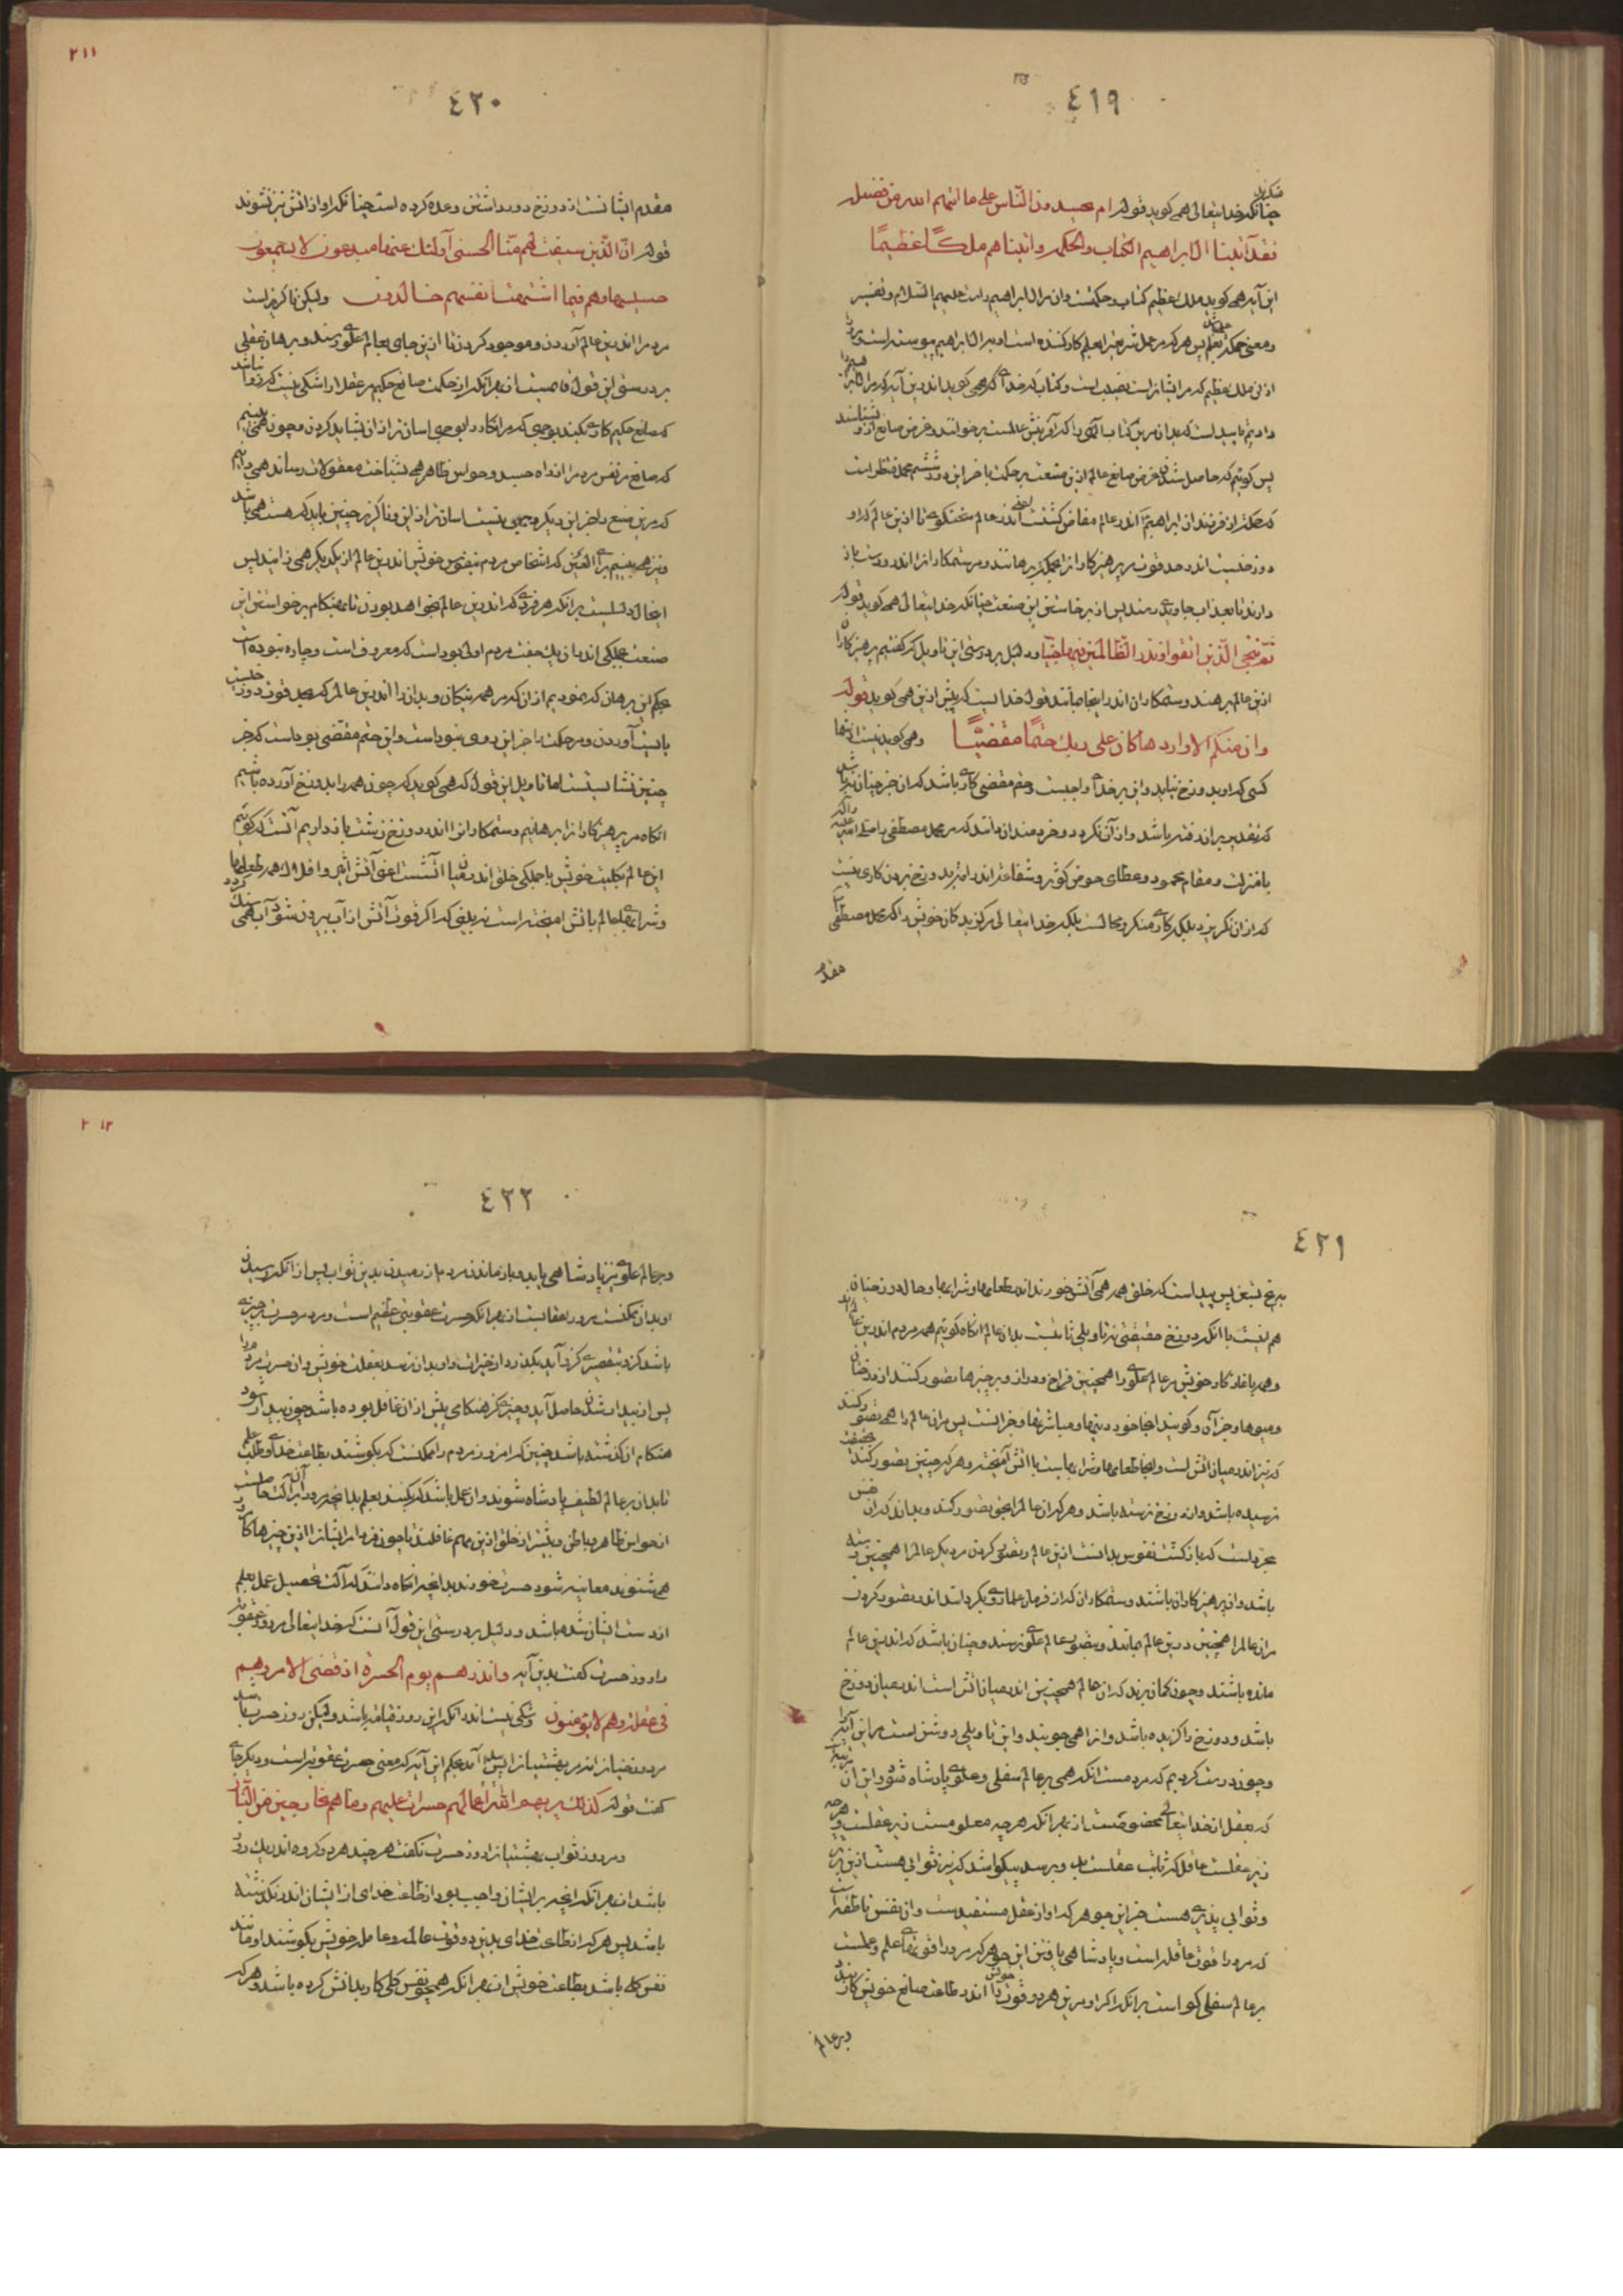 ٤١٩
چنانکه خدایتعالی همی کوید قوله ام یحسدون الناس علی ما اتیهم الله من فضله
فقد آتینا آل ابراهیم الکتاب والحکمه واتیناهم ملکًا عظیمًا
این آیه همی کوید ملک عظیم کتاب و حکمتست وان مر آل ابراهیم راست علیهم السلام و تفسیر
از این ملک عظیم که مر ایشانراست نصیب است و کتاب که خدای همی کوید اندرین آیه که مر آل ابراهیم را
دادیم ناپیداست که بدان مرین کتاب الهی را که آفرینش عالمست برخوانند و غرض صانع ازو بشناسند
پس کوئیم که حاصل شدن غرض صانع عالم ازین صنعت پرحکمت باخر این روز ششم محمد منتظر است
دوزخست اندر حد قوت بر پرهیزکارانرا بحکم برهانند و مر ستمکارانرا اندرو دست باز
دارند تا بعذاب جاوید رسند پس از برخاستن این صنعت چنانکه خدایتعالی همی کوید قوله
ثم ننجی الذین اتقوا ونذر الظالمین فیها جثیا و دلیل بر درستی این تاویل که کفتیم پرهیزکاران
ازین عالم برهند و ستمکاران اندر اینجا بمانند قول خدایست که پیش ازین همی کوید قوله
وان منکم الا واردها کان علی ربک حتمًا مقضیًا وهمی کوید نیست از شما
کسی که او بدوزخ نیاید و این بر خدای واجبست و حتم مقضی کاری باشد که ان جز چنان نباشد
با منزلت و مقام محمود و عطای حوض کوثر و شفاعت اندر امت بدوزخ بردن کاری نیست
که ازان نکریزد بلکه کاری منکر و محالست بلکه خدایتعالی مر کزیدکان خویش را که محمد مصطفی
مقدم
٢١١
٤٢٠
مقدم ایشانست از دوزخ دور داشتن وعده کرده است چنانکه اواز اتش نیز نشنوند
قوله ان الذین سبقت لهم منا الحسنی اولئک عنها مبعدون لا یسمعون
حسیسها وهم فیما اشتهت انفسهم خالدون ولیکن ناکریز است
مردم را اندرین عالم آوردن و موجود کردن تا ازین جای بعالم علوی رسند و برهان عقلی
بر درستی این قول قایمست از بهر آنکه از حکمت صانع حکیم مر عقل را شکی نیست که روا نباشد
که صانع حکیم کاری بکند بوجهی که مر انکار را بوجهی اسان تر ازان بشاید کردن و چون همی بینیم
که صانع مر نفس مردم را از راه جسد و حواس ظاهر همی بشناخت معقولات رساند همی دانیم
که مرین صنع را جز این دیکر وجهی نیست اسان تر ازین و ناکریز چنین باید که هست همی باشد
و نیز همی بینیم برای العین که اشخاص مردم بنفوس خویش اندرین عالم از یکدیکر همی زایند پس
این حال دلیلست بر انکه هر فردی که اندرین عالم بخواهد بودن تا بهنکام برخواستن این
صنعت بجملکی اندران یک جفت مردم اولی بوداست که معروف است و چاره نبوده است
بحکم این برهان که نمودیم ازان که مر همه نیکان و بدان را اندرین عالم که بحد قوت دوزخست
بایست آوردن و مر حکمت را جز این روی نبوداست و این حتم مقضی بوداست که جز
چنین نشایستست اما تاویل این قول که همی کوید که چون همه را بدوزخ آورده باشیم
انکاه مر پرهیزکارانرا برهانیم و ستمکارانرا اندر دوزخ زشت باز داریم آنست که کوئیم
این عالم بکلیت خویش با جملکی خلق اندر میان اتشست اعنی آتش اثیر و افلاک و همه طعامها
و شرابهای عالم باتش امیخته است نه بینی که اکر قوت آتش از آب بیرون شود آب همی سنک کردد
٤٢١
برنج نبض پس پیداست که خلق همه همی آتش خورند اندر طعامها و شرابها و حال دوزخیان
هم اینست با انکه دوزخ حقیقتی نه تاویلی ثابتست بدان عالم انکاه کوئیم همه مردم اندرین عالم اید
و همه باغاز کار خویش مر عالم علوی را همچنین فراخ و دراز و پر چیزها تصور کنند از درختان
و میوها و جز آن و کویند انجا خوردنیها و مباشرتها و جز انست پس مران عالم را همی تصور کنند
که نیز اندر میان اتش است و انجا طعامها و شرابهاست با اتش آمیخته و هر که چنین تصور کند بحقیقت
نرسیده باشد و از دوزخ نرسته باشد و هر که ان عالم را بحق تصور کند و بداند که ان
باشد و ان پرهیزکاران باشند و ستمکاران که از فرمان علمای دیکر داستند اندر تصور کردن
مران عالم را همچنین درین عالم بمانند و بتصویر عالم علوی نرسند و چنان باشد که اندرین عالم
مانده باشند و چون کمان برند که ان عالم همچنین اندر میان اتش است اندر میان دوزخ
باشد و دوزخ را کزیده باشد و انرا همی جویند و این تاویلی روشن است مر این آیه را
و چون درست کردیم که مردمست انکه همی بر عالم سفلی و علوی پادشاه شود و این ان مرتبتست
که بعقل از خدایتعالی مخصوصست از بهر آنکه هر چه معلومست زیر عقلست و هر چه
زیر عقلست عاقل که نائب عقلست بدو برسد پیکو باشد که نیز ثوابی هست ازین برتر
و ثوابی پذیری هست جز این جوهر که او از عقل مستفیدست وان نفس ناطقه است
که مرورا قوت عاقله است و پادشاهی یافتن این جوهر که مرورا قوتهای علم و عملست
بر عالم سفلی کواست بر انکه اکر او مرین هر دو قوت را اندر طاعت صانع خویش کار بندد
و بر عالم
٢١٢
٤٢٢
و بر عالم علوی نیز پادشاهی یابد و باز ماندن مردم از رسیدن بدین ثواب پس از انکه رسیدن
او بدان ممکنست مرورا عقابست از بهر انکه حسرت عقوبتی عظیم است و مردم را حسرت بر چیزی
باشد کزو بتقصیری کزو آید بکذرد از خیرات و او بدان نرسد بغفلت خویش وان حسرت مرورا
پس از بیدار شدن حاصل آید و چیزی کز هنکامی پیش ازان غافل بوده باشد چون بیدار شود
هنکام ان کذشته باشد چنین که امروز مردم را ممکنست که بکوشند بطاعت خدای و طلب علم
تا بدان بر عالم لطیف پادشاه شوند وان عمل باشد که بکنند بعلم بدانچه مرورا آن آلت حاصلست
از حواس ظاهر و باطن و بیشتر از خلق ازین مهم غافلند تا چون فردا مر ایشانرا ازین چیزها کار
همی شنوند معاینه شود حسرت خورند بدانچه انکاه دانند که آلت تحصیل عمل بعلم
از دست ایشان شده باشد و دلیل بر درستی این قول آنست که خدایتعالی مر روز عقوبت
را روز حسرت کفت بدین آیه وانذرهم یوم الحسرة اذ قضی الامر وهم
فی غفلة وهم لا یؤمنون و شکی نیست اندر انکه این روز قیامت باشد ولیکن روز حسرت باشد
مر دوزخیانرا نه مر بهشتیانرا پس پیدا آمد بحکم این آیه که معنی حسرت عقوبتست و دیکر جای
کفت قوله کذلک یریهم الله اعمالهم حسرات علیهم وما هم بخارجین من النار
و مر روز ثواب بهشتیانرا روز حسرت نکفت هر چند هر دو کروه اندر یک روز
باشد از بهر انکه انچه بر ایشان واجب بود از طاعت خدای از ایشان اندر نکذشته
باشد پس هر که از طاعت خدای بدین دو قوت عالمه و عامله خویش بکوشد او مانند
نفس کل باشد بطاعت خویش از بهر انکه همچو نفس کلی کار بدانش کرده باشد و هر که